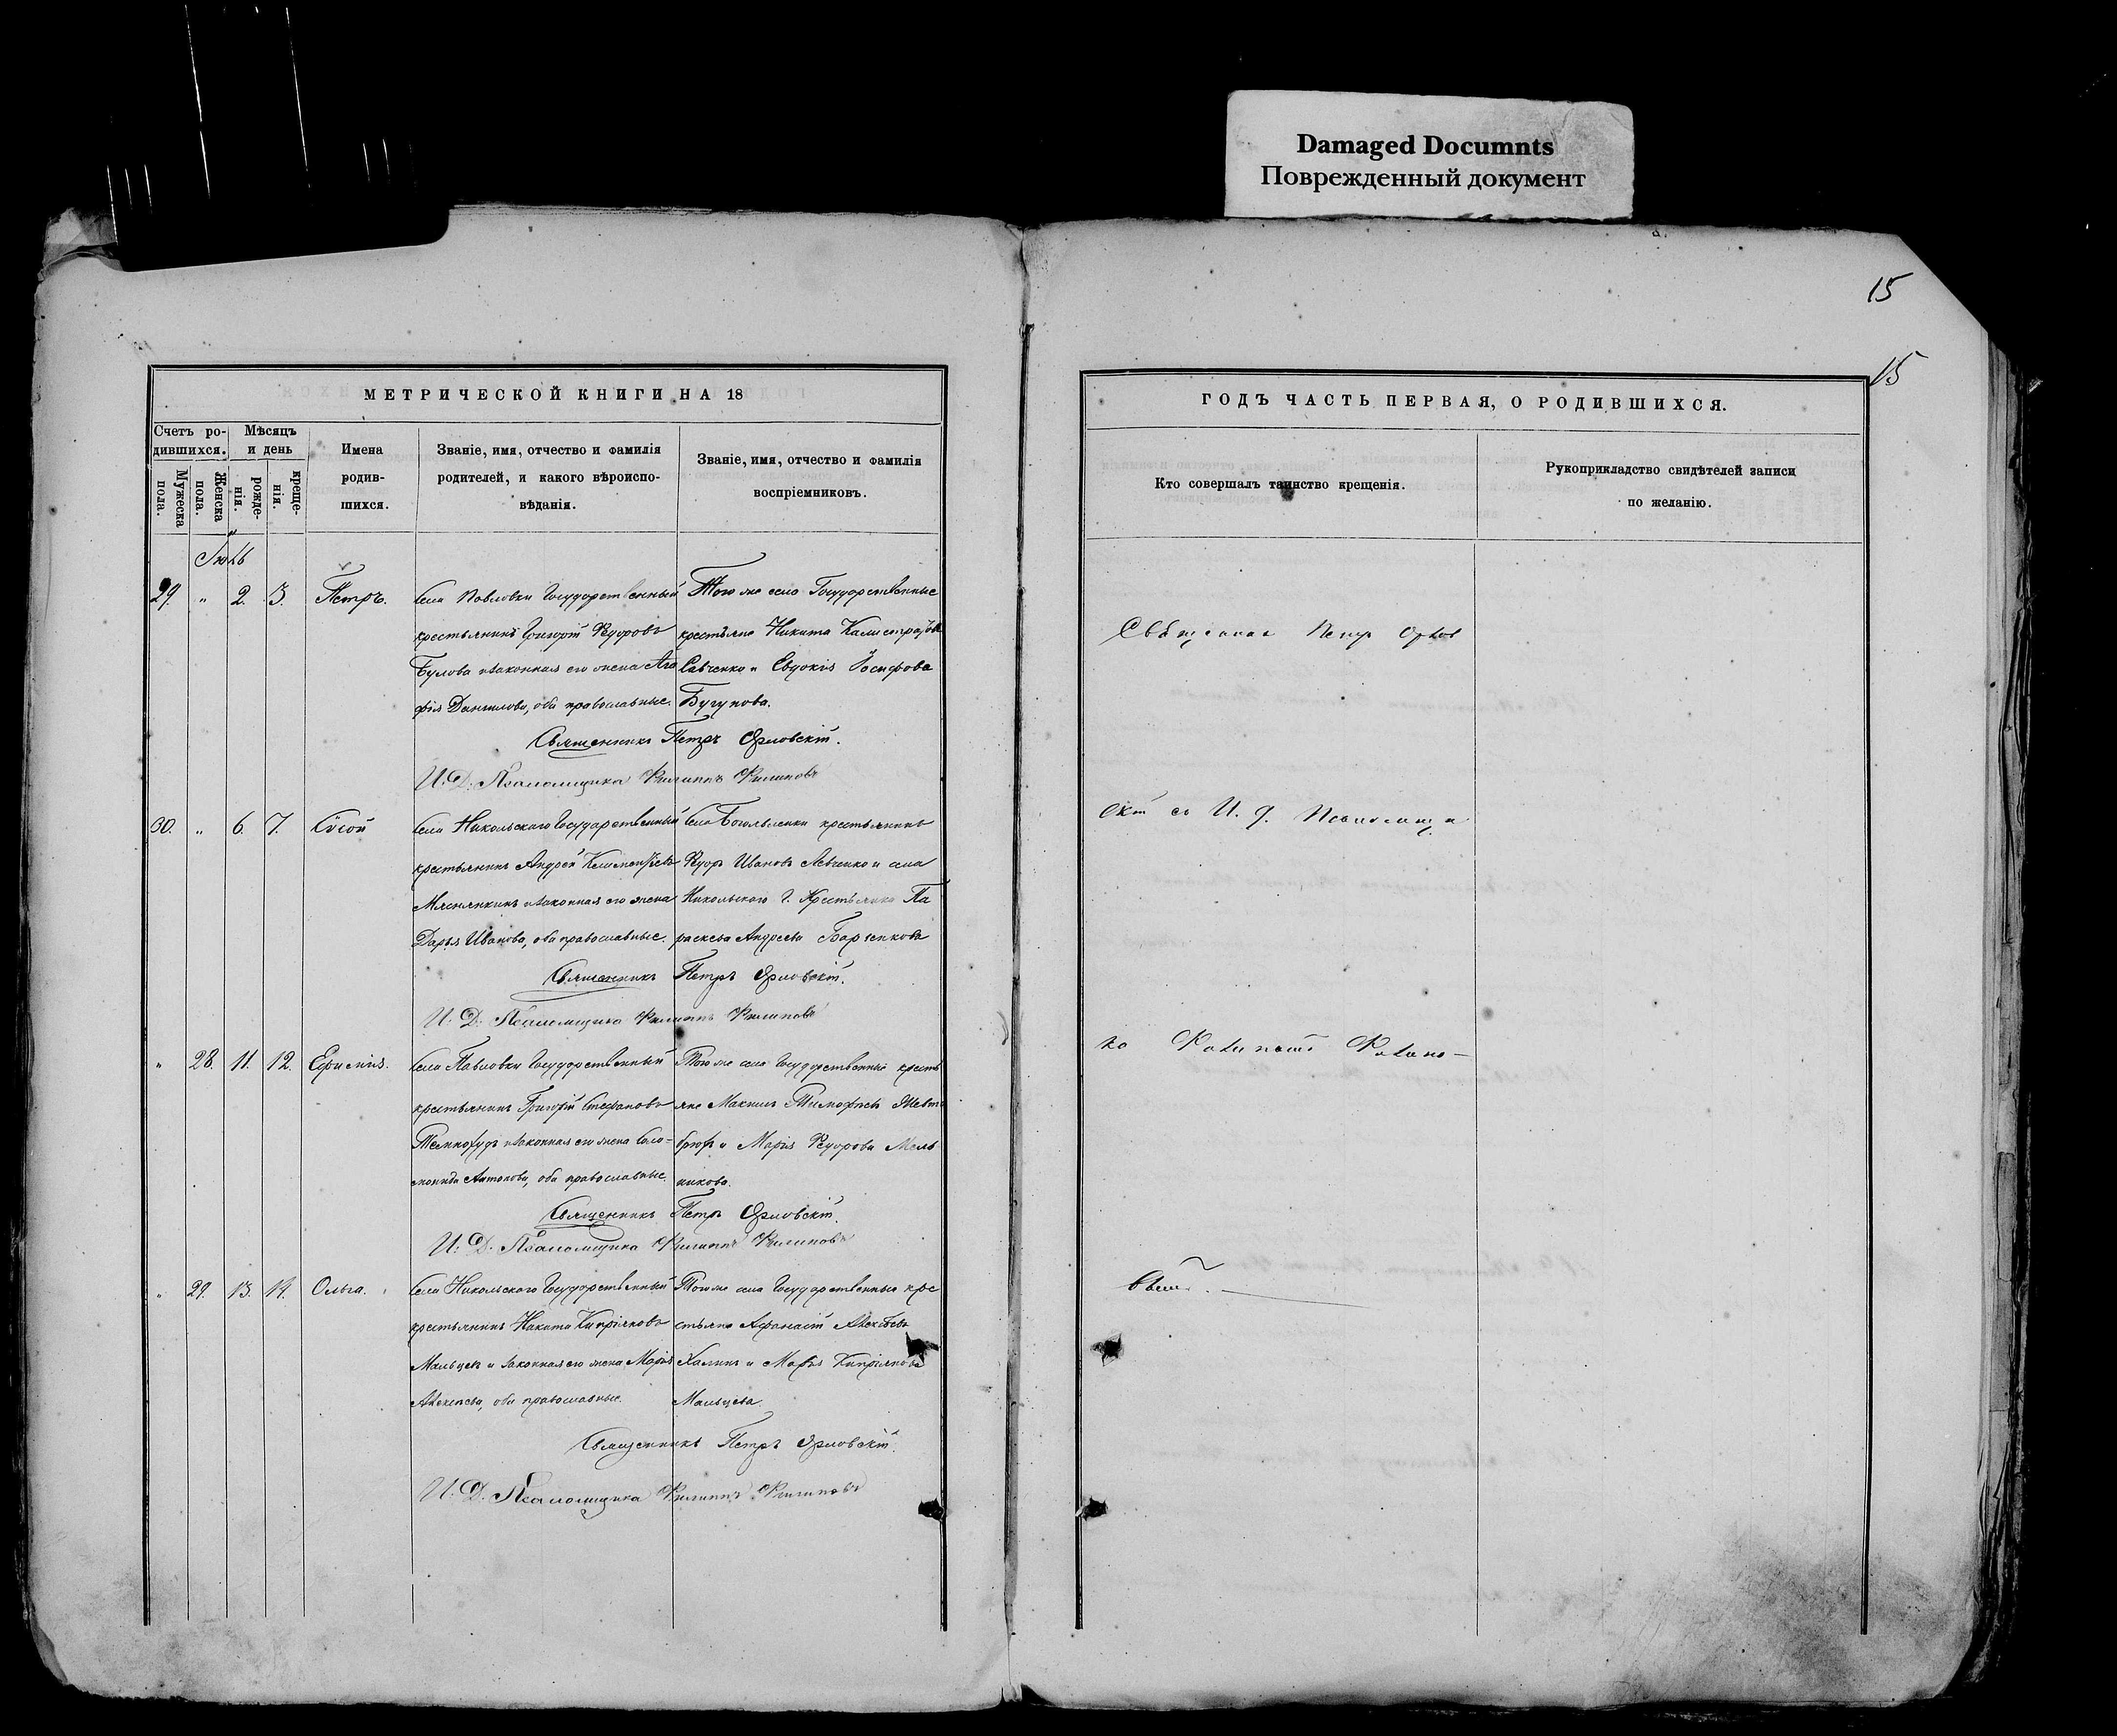 Damaged Documnts
Поврежденный документ
15
15
МЕТРИЧЕСКОЙ КНИГИ НА 18
ГОДЪ ЧАСТЬ ПЕРВАЯ, О РОДИВШИХСЯ.
Счетъ ро-
дившихся.
Мужеска
пола.
Женска
пола.
Мѣсяцъ
и день
рожде-
нія.
креще-
нія.
Имена
родив-
шихся.
Званіе, имя, отчество и фамилія
родителей, и какого вѣроиспо-
вѣданія.
Званіе, имя, отчество и фамилія
воспріемниковъ.
Кто совершалъ таинство крещенія.
Рукоприкладство свидѣтелей записи
по желанію.
29. " 2. 3. Петръ.
Села Павловки Государственный
крестьянинъ Григорій Ѳедоровъ
и законная его жена Ага
фія Данилова, оба православные.
Того же села Государственные
крестьяне Никита Калистратовъ
Савченко и Евдокія Іосифова
Бугунова.
Священникъ Петръ Орловскій.
И. Д. Псаломщика Филиппъ Филиповъ
30. " 6. 7.
Села Никольскаго Государственный
крестьянинъ Андрей Климентьевъ
Мяснянкинъ и законная его жена
Дарья Иванова, оба православные.
Села крестьянинъ
Ѳедоръ Ивановъ Левченко и села
Никольскаго Г. Крестьянка Па
раскева Андреева Барченкова
Священникъ Петръ Орловскій.
И. Д. Псаломщика Филиппъ Филиповъ
" 28. 11. 12. Ефимія.
Села Павловки Государственный
крестьянинъ Григорій Стефановъ
и законная его жена Соло-
монида Антонова, оба православные.
Того же села Государственные кресть
яне Максимъ Тимофеевъ
и Марія Ѳедорова Мель
никова.
Священникъ Петръ Орловскій.
И. Д. Псаломщика Филиппъ Филиповъ
" 29. 13. 14. Ольга.
Села Никольскаго Государственный
крестьянинъ Никита Кипріяновъ
Мальцевъ и законная его жена Марія
Алексеева, оба православные.
Того же села Государственные кре
стьяне Афанасій Алексѣевъ
Халинъ и Марья Кипріянова
Мальцева.
Священникъ Петръ Орловскій.
И. Д. Псаломщика Филиппъ Филиповъ
Священникъ Петръ Орлов
скій съ И. д. Псаломщи
ко Филипомъ Филипо-
вымъ.